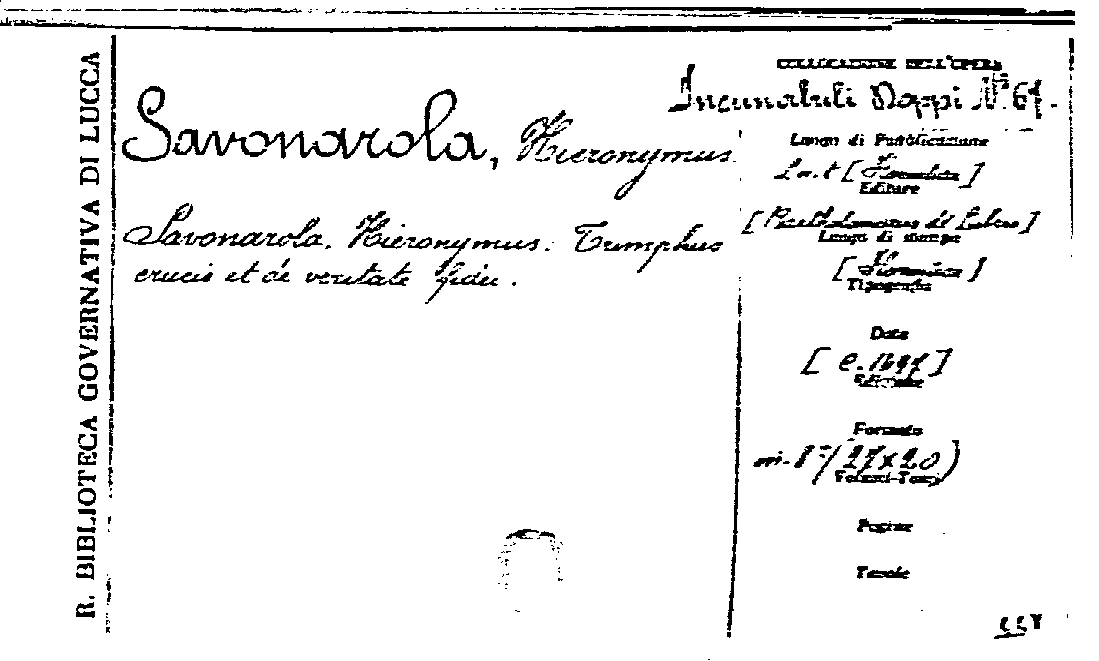 R. BIBLIOTECA GOVERNATIVA DI LUCCA
COLLOCAZIONE DELL'OPERA
Incunabuli Nappi N° 61.
Savonarola, Hieronymus
Savonarola. Hieronymus. Triumphus
crucis et de veritate fidei.
Luogo di Pubblicazione
[Florentiae]
Editore
[Bartholomaeus de Libris]
Luogo di stampa
[Florentiae]
Tipografia
Data
[c. 1497]
Edizione
Formato
(27x20)
Volumi-Tomi
Pagine
Tavole